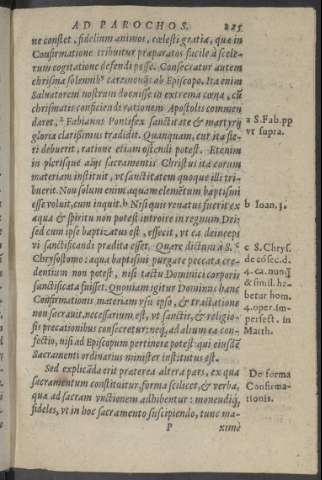 AD PAROCHOS. 225
ne constet, fidelium animos, cœlesti gratia, quæ in
Confirmatione tribuitur præparatos facile à scele-
rum cogitatione defendi posse. Consecratur autem
chrisma solemnib. ceremoniis ab Episcopo. Ita enim
Saluatorem nostrum docuisse in extrema cœna, cũ
chrismatis conficiendi rationem Apostolis commen
daret, a Fabianus Pontifex sanctitate & martyrij
gloria clarissimus tradidit. Quanquam, cur ita fie-
ri debuerit, ratione etiam ostendi potest. Etenim
in plerisque alijs sacramentis Christus ita eorum
materiam instituit, vt sanctitatem quoque illi tri-
buerit. Non solum enim aquam elemẽtum baptismi
esse voluit, cum inquit. b Nisi quis renatus fuerit ex
aqua & spiritu non potest introire in regnum Dei:
sed cum ipse baptizatus est, effecit, vt ea deinceps
vi sanctificandi prædita esset. Quare dictum à S. c
Chrysostomo: aqua baptismi purgare peccata cre-
dentium non potest, nisi tactu Dominici corporis
sanctificata fuisset. Quoniam igitur Dominus hanc
Confirmationis materiam vsu ipso, & tractatione
non sacrauit, necessarium est, vt sanctis, & religio-
sis precationibus consecretur; neq; ad alium ea con-
fectio, nisi ad Episcopum pertinere potest qui eiusdẽ
Sacramenti ordinarius minister institutus est.
Sed explicãda erit præterea altera pars, ex qua
sacramentum constituitur, forma scilicet, & verba,
quæ ad sacram vnctionem adhibentur: monendiq́;
fideles, vt in hoc sacramento suscipiendo, tunc ma-
P ximè
a S. Fab. pp
vt supra.
b Ioan. 3.
c S. Chrys.
de cõsec. d.
4. ca. nunq̃
& simil. ha-
betur hom.
4. oper. im-
perfect. in
Matth.
De forma
Confirma-
tionis.